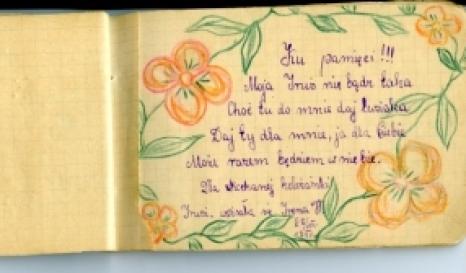 Ku pamięci !!!
Moja Iruś nie bądź taka
Choć tu do mnie daj buziaka
Daj ty dla mnie, ja dla Ciebie
Może razem będziem w niebie.
Dla kochanej koleżanki
Irusi, wpisała się Irena